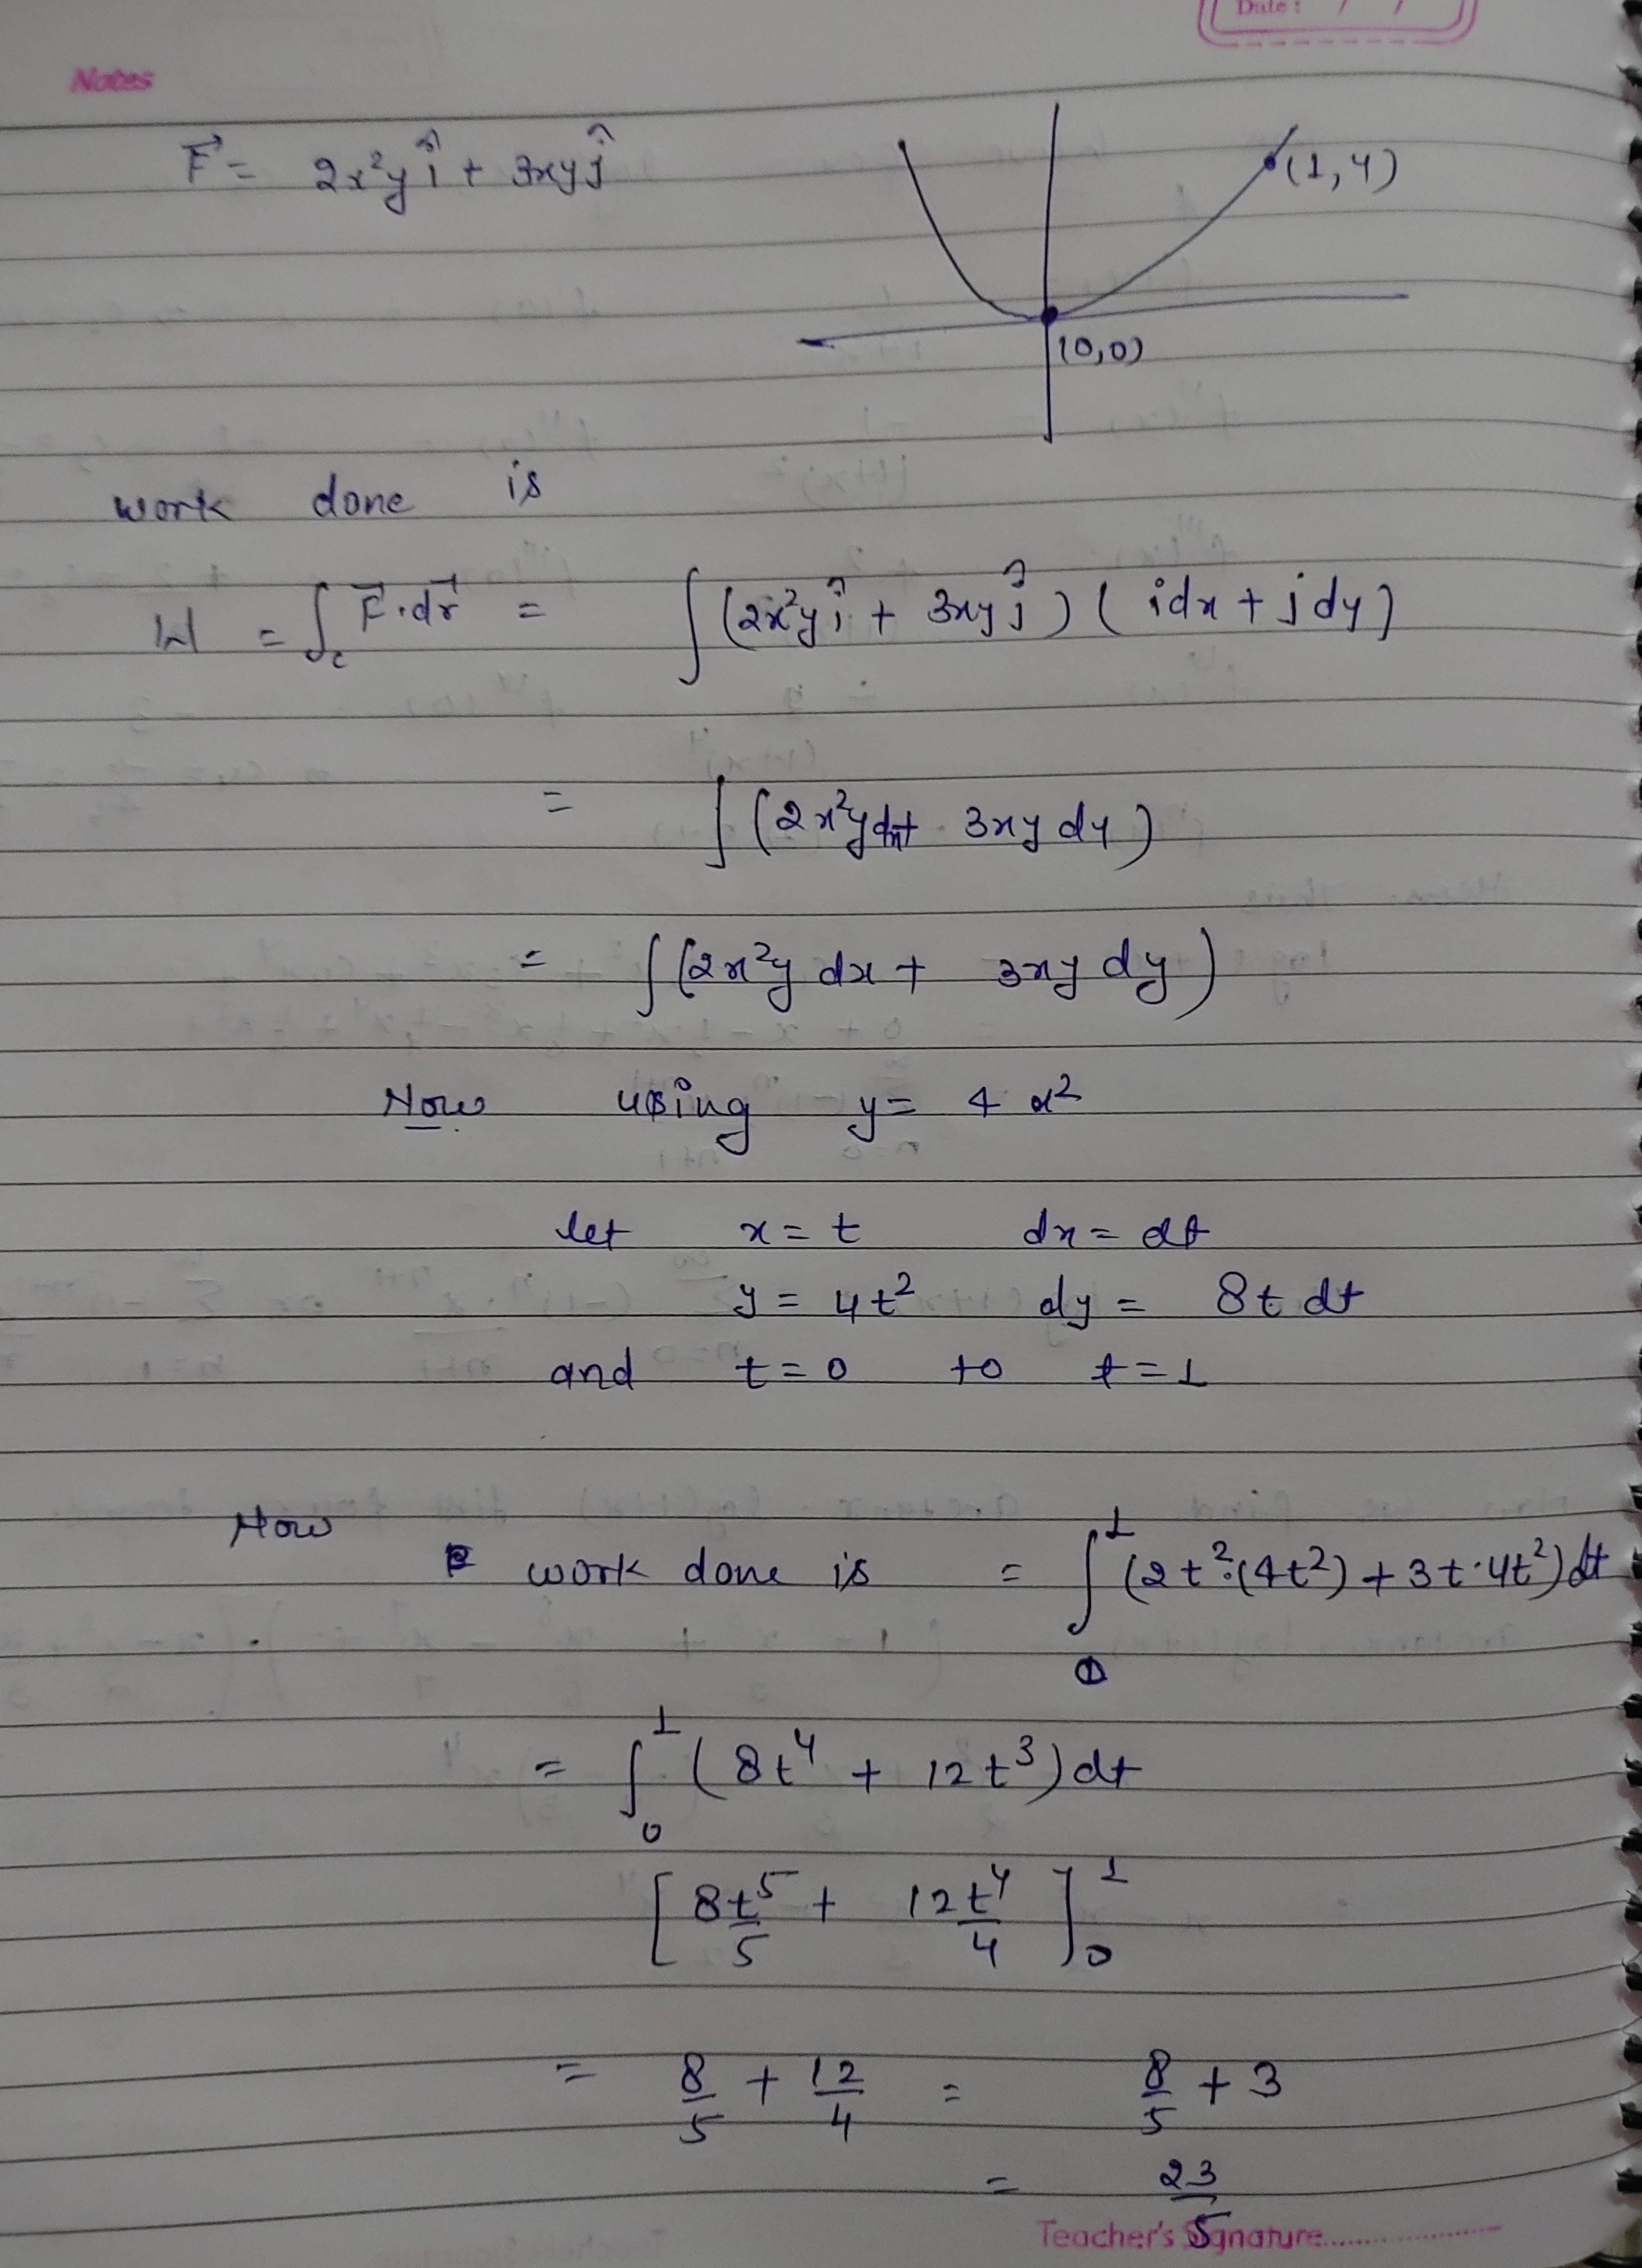 Date : / /
Notes
F⃗ = 2x²y î + 3xy ĵ
(1,4)
(0,0)
work done is
W = ∫_c F⃗.dr⃗ = ∫ (2x²y î + 3xy ĵ) ( i dx + j dy )
= ∫ (2x²y dx + 3xy dy)
= ∫ (2x²y dx + 3xy dy)
Now using y = 4 x²
let x = t dx = dt
y = 4t² dy = 8t dt
and t = 0 to t = 1
Now
work done is = ∫₀¹ (2t².(4t²) + 3t·4t²) dt
= ∫₀¹ ( 8t⁴ + 12t³) dt
[ 8t⁵/5 + 12t⁴/4 ]₀¹
= 8/5 + 12/4 = 8/5 + 3
= 23/5
Teacher's Signature..................